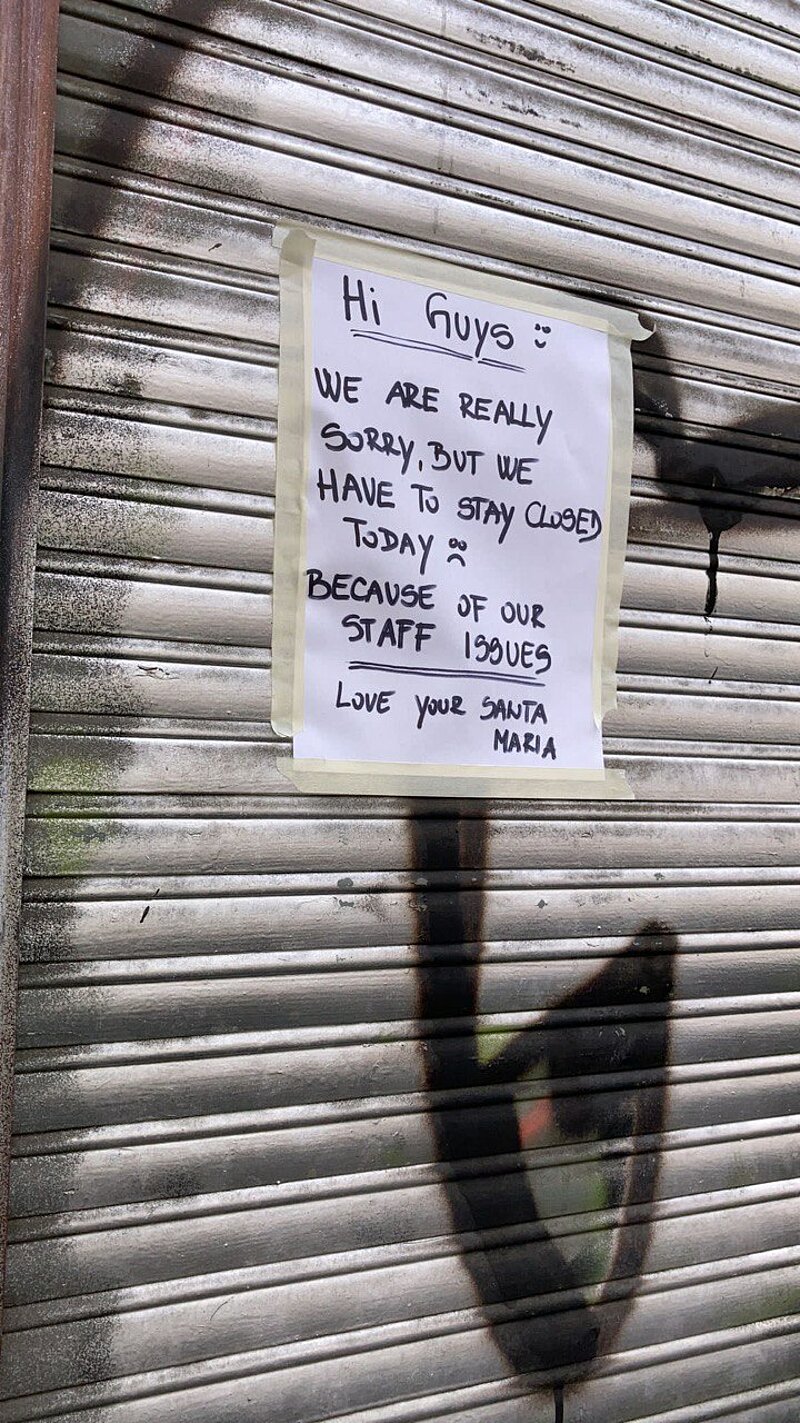 Hi Guys :)
WE ARE REALLY
SORRY, BUT WE
HAVE TO STAY CLOSED
TODAY :(
BECAUSE OF OUR
STAFF ISSUES
LOVE YOUR SANTA
MARIA